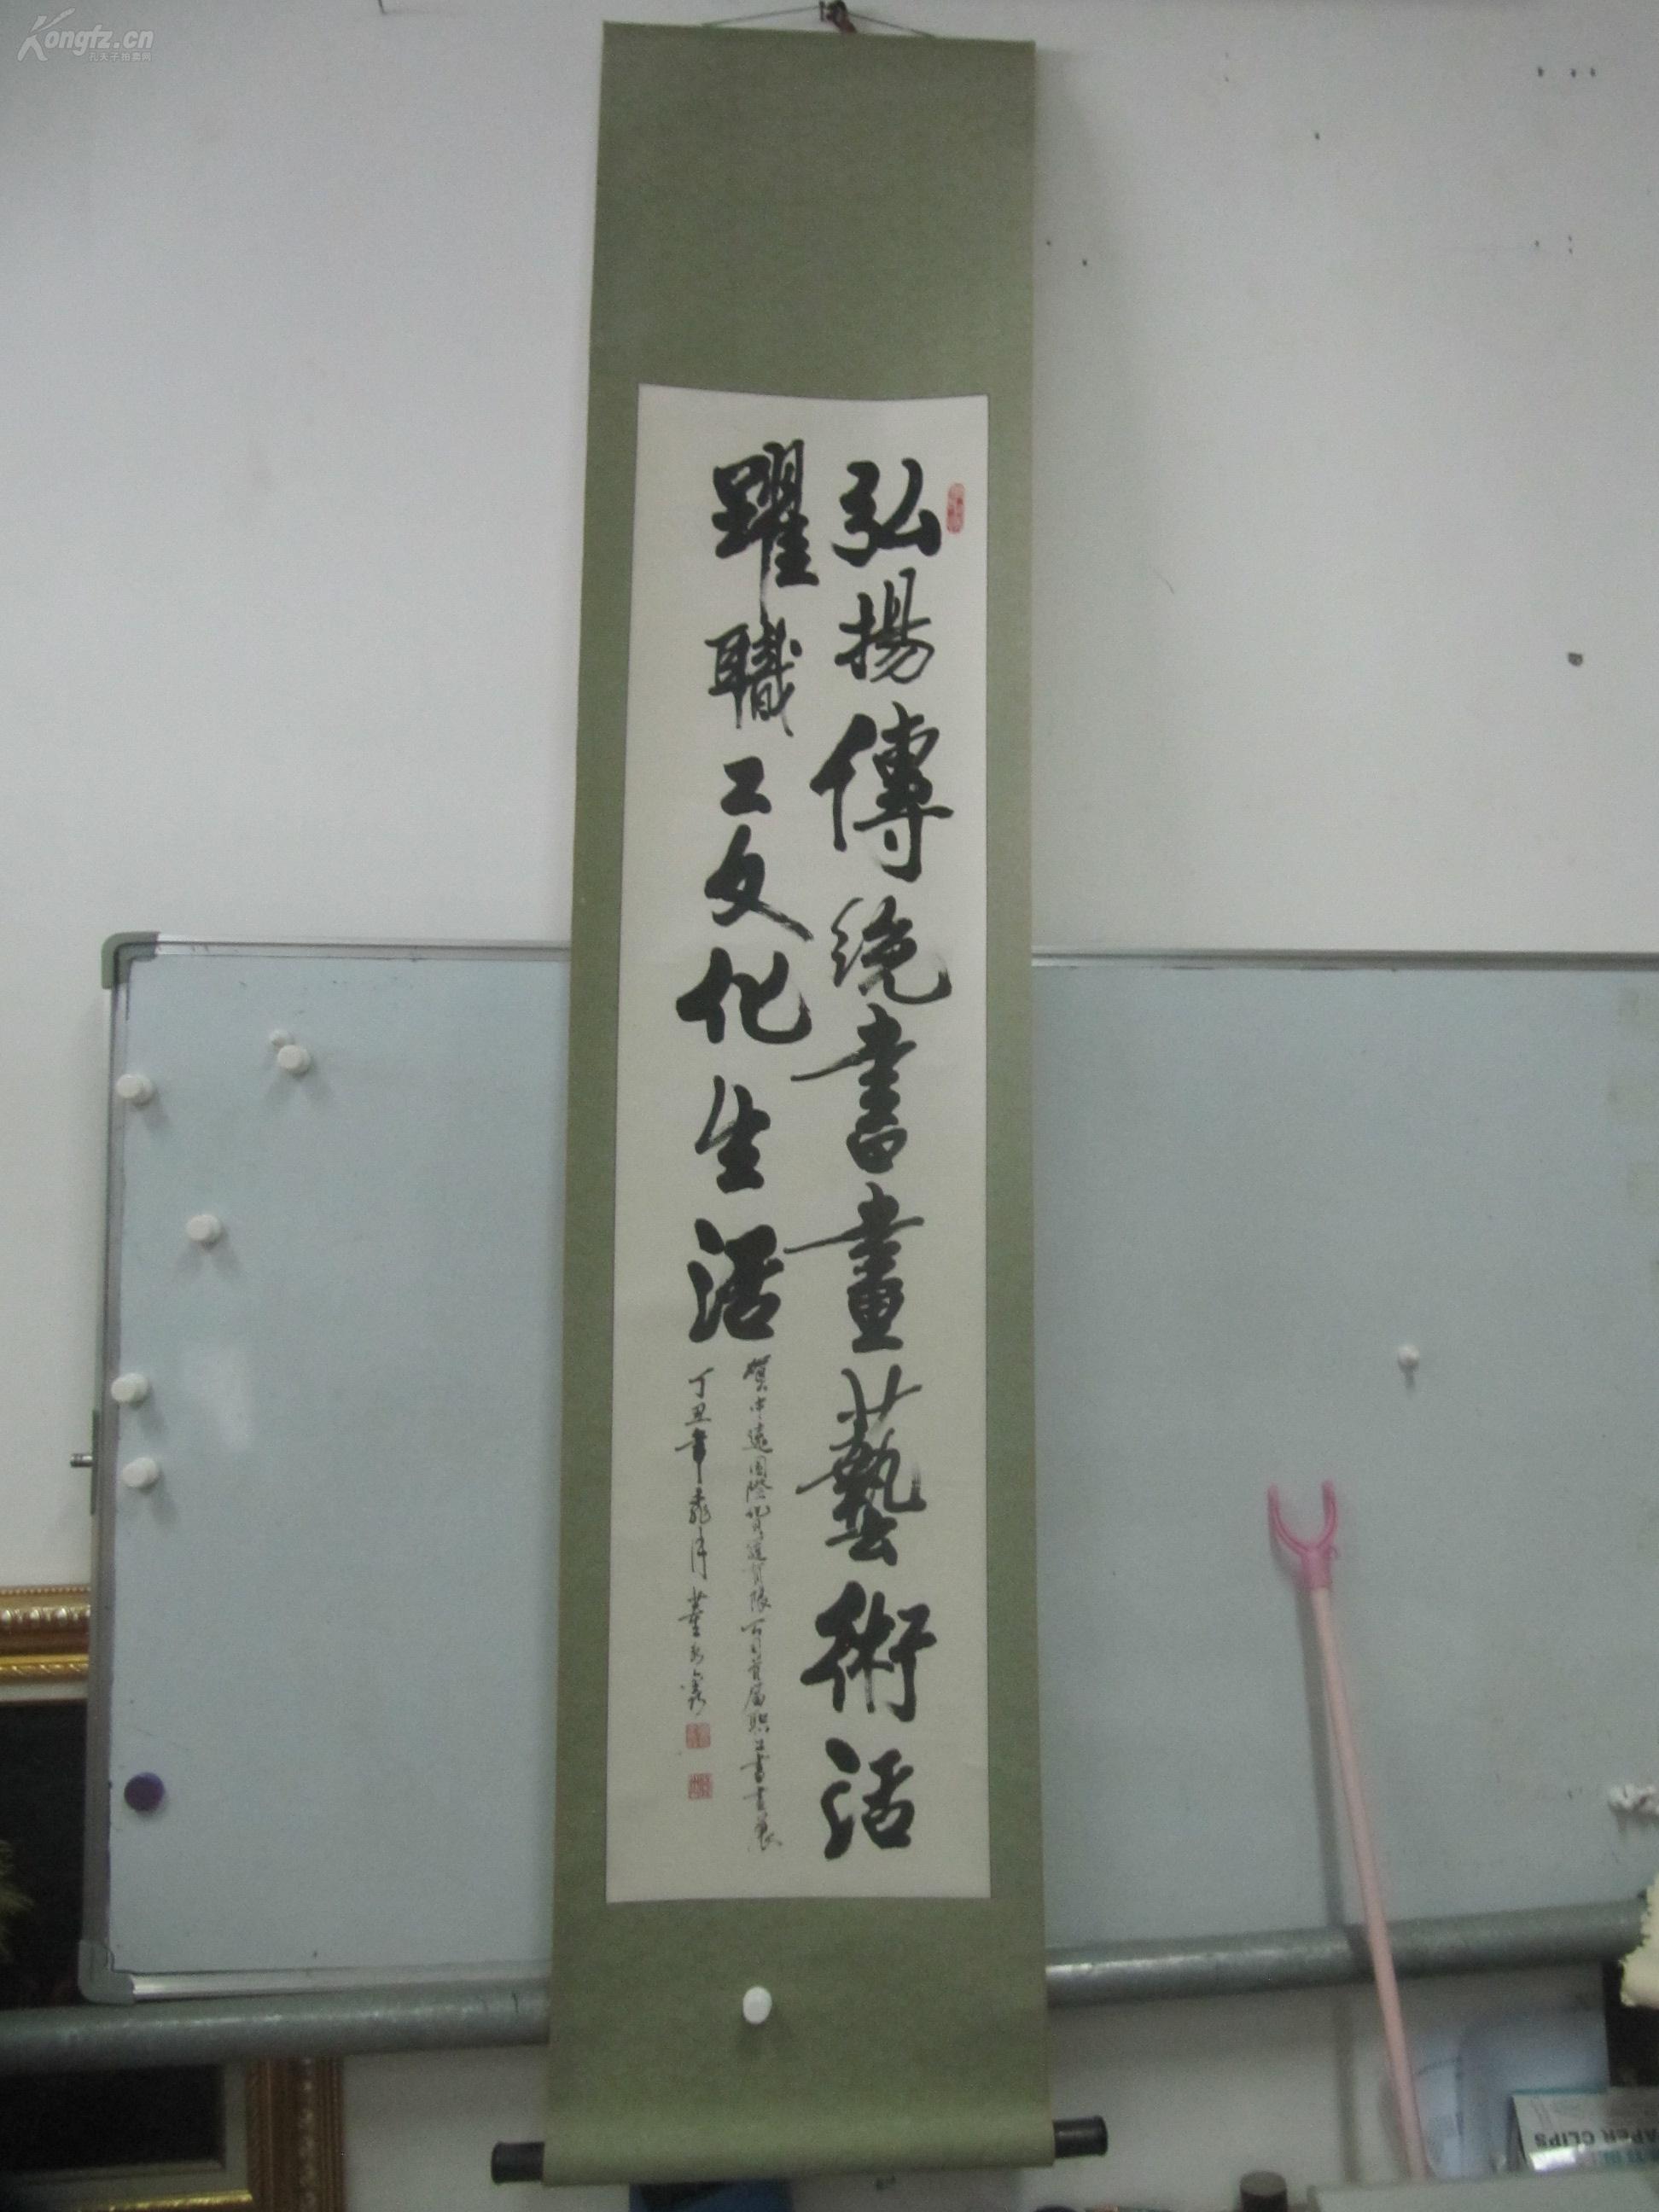 弘揚傳統書畫藝術活
躍職工文化生活
賀中遠國際貨運有限公司首届职工書画展
丁丑年
Kongfz.cn
孔夫子拍卖网
PAPER CLIPS